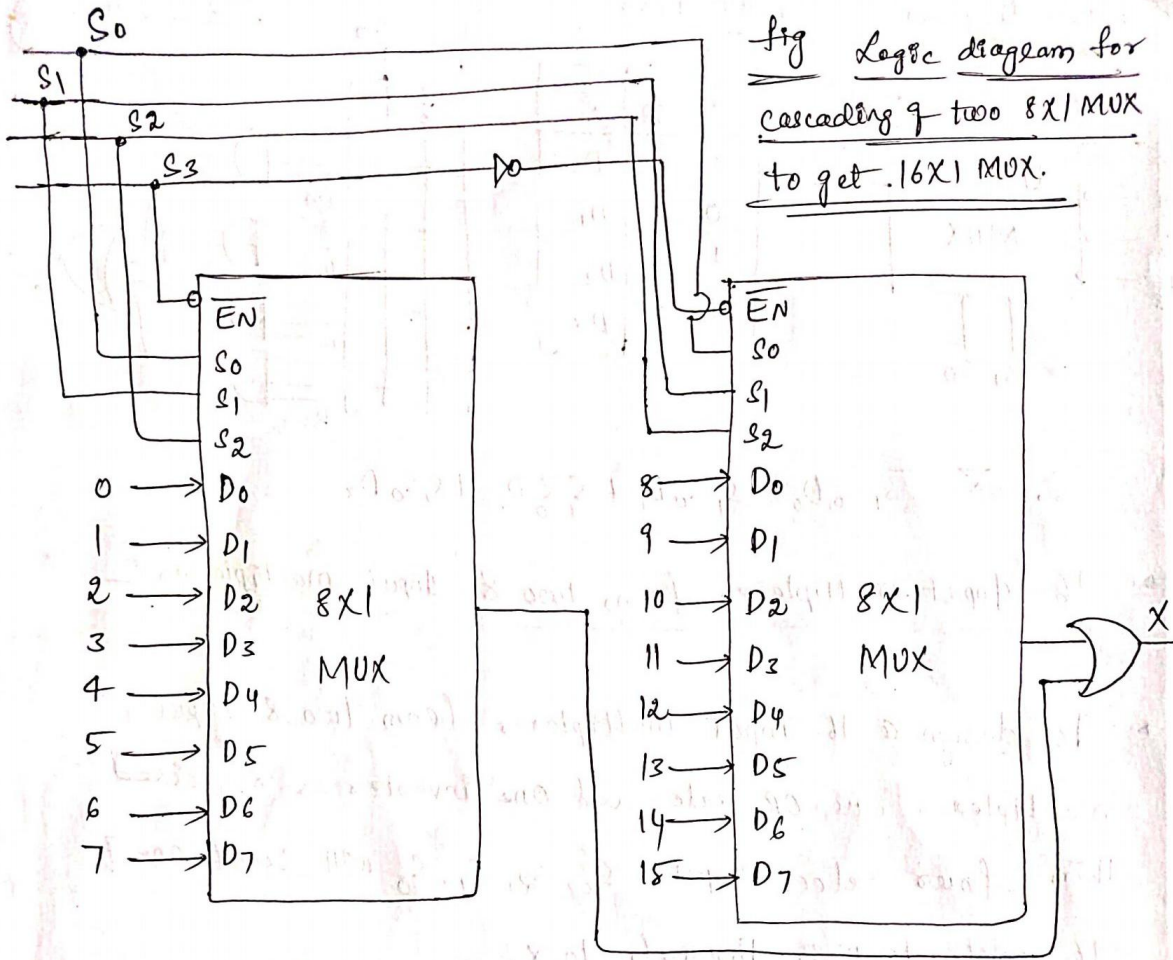 S0
S1
S2
S3
fig Logic diagram for
cascading of two 8X1 MUX
to get .16X1 MUX.
EN
S0
S1
S2
0 D0
1 D1
2 D2
3 D3
4 D4
5 D5
6 D6
7 D7
8X1
MUX
EN
S0
S1
S2
8 D0
9 D1
10 D2
11 D3
12 D4
13 D5
14 D6
15 D7
8X1
MUX
X